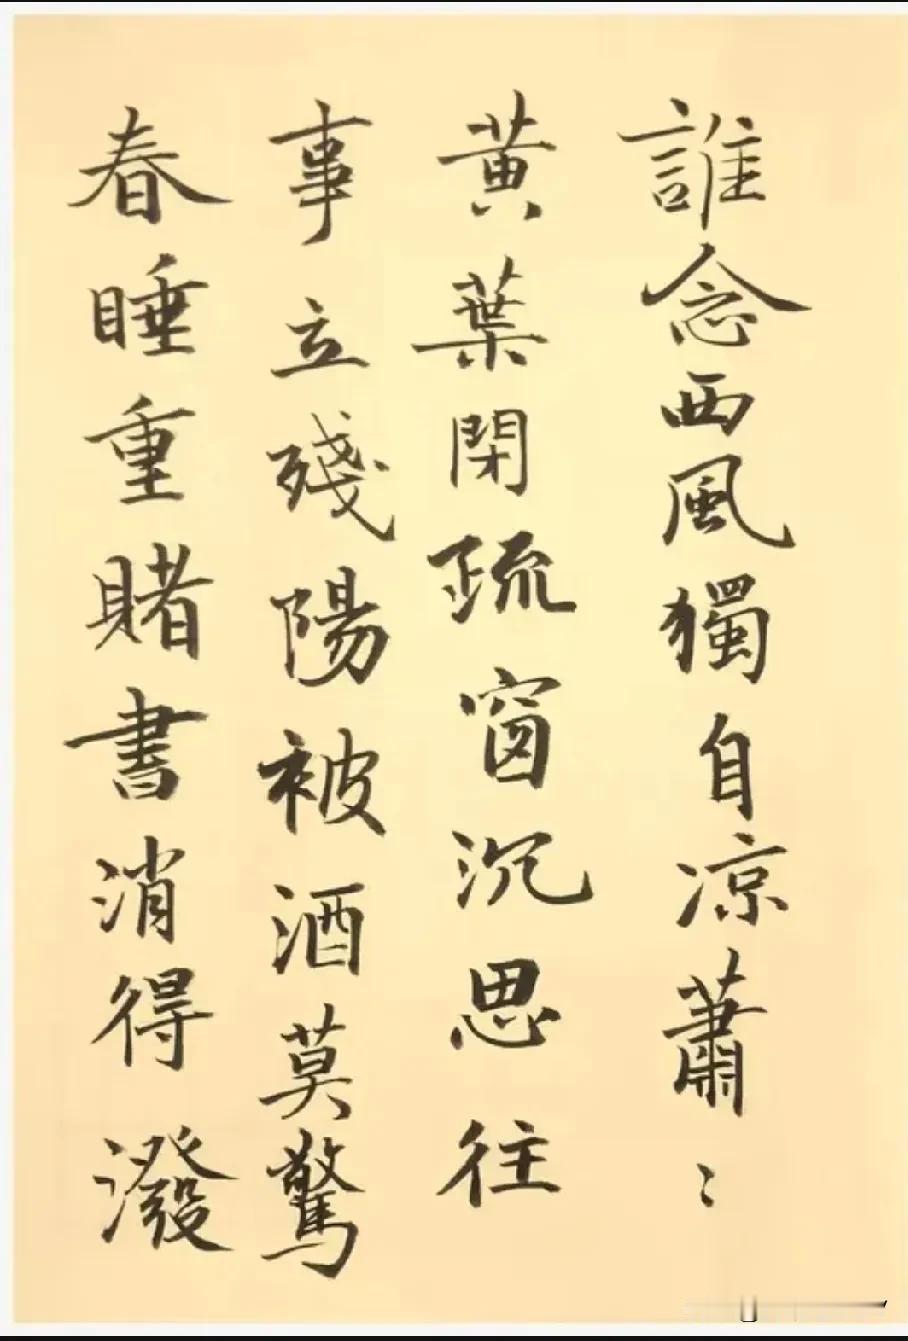 誰念西風獨自凉蕭〻
黄葉閉疏窗沉思往
事立殘陽被酒莫驚
春睡重賭書消得潑